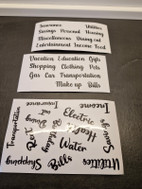 Insurance Utilities
Savings Personal Housing
Miscellaneous Dining out
Entertainment Income Food
Vacation Education Gifts
Shopping Clothing Pets
Gas Car Transportation
Make up Bills
Transportation
Insurance
Income
Electric
Car
Water
Shopping
Bills
Utilities